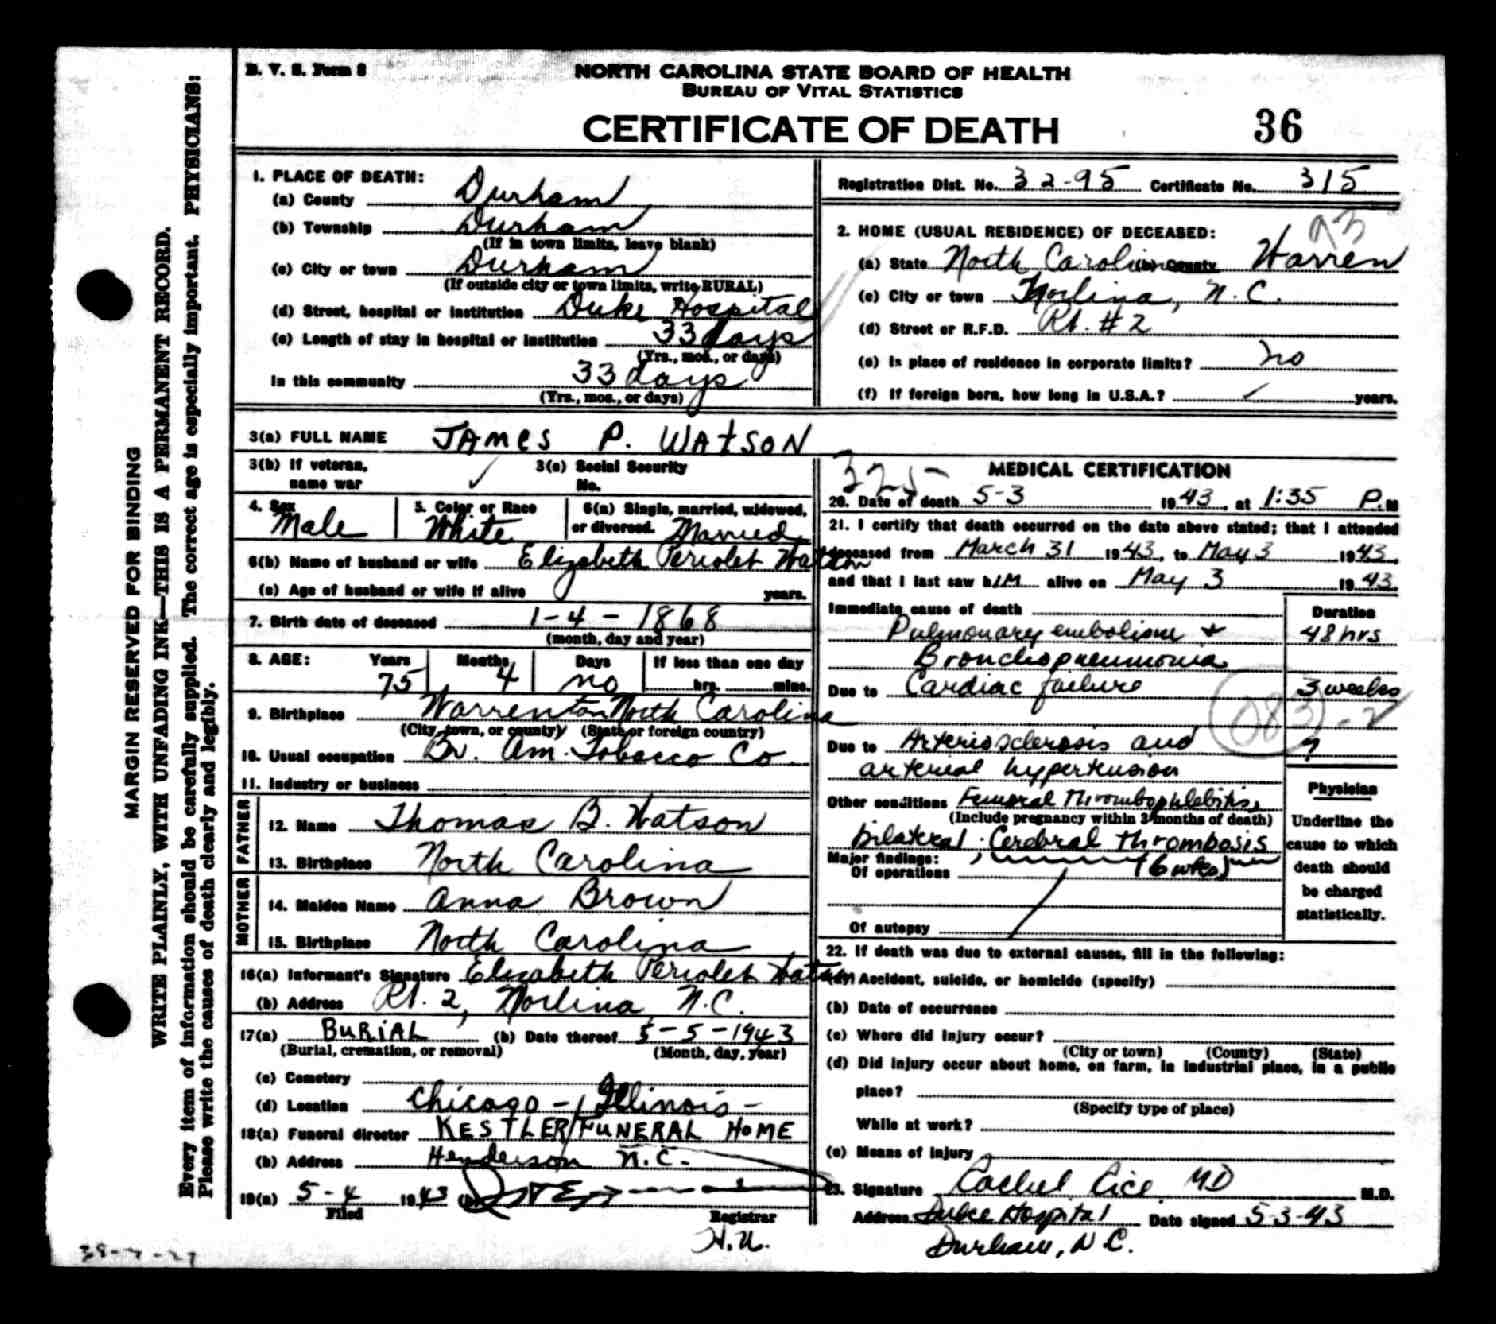 B. V. S. Form 8
NORTH CAROLINA STATE BOARD OF HEALTH
BUREAU OF VITAL STATISTICS
CERTIFICATE OF DEATH
36
MARGIN RESERVED FOR BINDING
WRITE PLAINLY, WITH UNFADING INK—THIS IS A PERMANENT RECORD.
Every item of information should be carefully supplied. The correct age is especially important. PHYSICIANS:
Please write the causes of death clearly and legibly.
1. PLACE OF DEATH:
(a) County Durham
(b) Township Durham
(If in town limits, leave blank)
(c) City or town Durham
(If outside city or town limits, write RURAL)
(d) Street, hospital or institution Duke Hospital
(e) Length of stay in hospital or institution 33 days
(Yrs., mos., or days)
In this community 33 days
(Yrs., mos., or days)
Registration Dist. No. 32-95 Certificate No. 315
93
2. HOME (USUAL RESIDENCE) OF DECEASED:
(a) State North Carolina (b) County Warren
(c) City or town Norlina, N.C.
(d) Street or R.F.D. Rt. #2
(e) Is place of residence in corporate limits? no
(f) If foreign born, how long in U.S.A.? years.
3(a) FULL NAME JAMES P. WATSON
3(b) If veteran, name war
3(c) Social Security No.
4. Sex Male
5. Color or Race White
6(a) Single, married, widowed, or divorced. Married
6(b) Name of husband or wife Elizabeth Periolet Watson
(c) Age of husband or wife if alive years.
7. Birth date of deceased 1-4-1868
(month, day and year)
8. AGE: Years Months Days If less than one day
75 4 no hrs. mins.
9. Birthplace Warrenton North Carolina
(City, town, or county) (State or foreign country)
10. Usual occupation Br. Am. Tobacco Co.
11. Industry or business
FATHER
12. Name Thomas B. Watson
13. Birthplace North Carolina
MOTHER
14. Maiden Name Anna Brown
15. Birthplace North Carolina
16(a) Informant's Signature Elizabeth Periolet Watson
(b) Address Rt. 2, Norlina, N.C.
17(a) BURIAL (b) Date thereof 5-5-1943
(Burial, cremation, or removal) (Month, day, year)
(c) Cemetery
(d) Location Chicago - Illinois -
18(a) Funeral director KESTLER FUNERAL HOME
(b) Address Henderson N.C.
19(a) 5-4 1943 (b)
Filed Registrar
H.U.
325
MEDICAL CERTIFICATION
20. Date of death 5-3 1943, at 1:35 P.M
21. I certify that death occurred on the date above stated; that I attended
deceased from March 31 1943, to May 3 1943.
and that I last saw hIM alive on May 3 1943.
Immediate cause of death
Duration
Pulmonary embolism + 48 hrs
Bronchopneumonia
Due to Cardiac failure 3 weeks
083-2
Due to Arteriosclerosis and ?
arterial hypertension
Other conditions Femoral Thrombophlebitis,
(Include pregnancy within 3 months of death)
bilateral. Cerebral thrombosis
(6 wks)
Major findings:
Of operations
Of autopsy
Physician
Underline the
cause to which
death should
be charged
statistically.
22. If death was due to external causes, fill in the following:
(a) Accident, suicide, or homicide (specify)
(b) Date of occurrence
(c) Where did injury occur?
(City or town) (County) (State)
(d) Did injury occur about home, on farm, in industrial place, in a public
place?
(Specify type of place)
While at work?
(e) Means of injury
23. Signature MD M.D.
Address Duke Hospital Date signed 5-3-43
Durham, N.C.